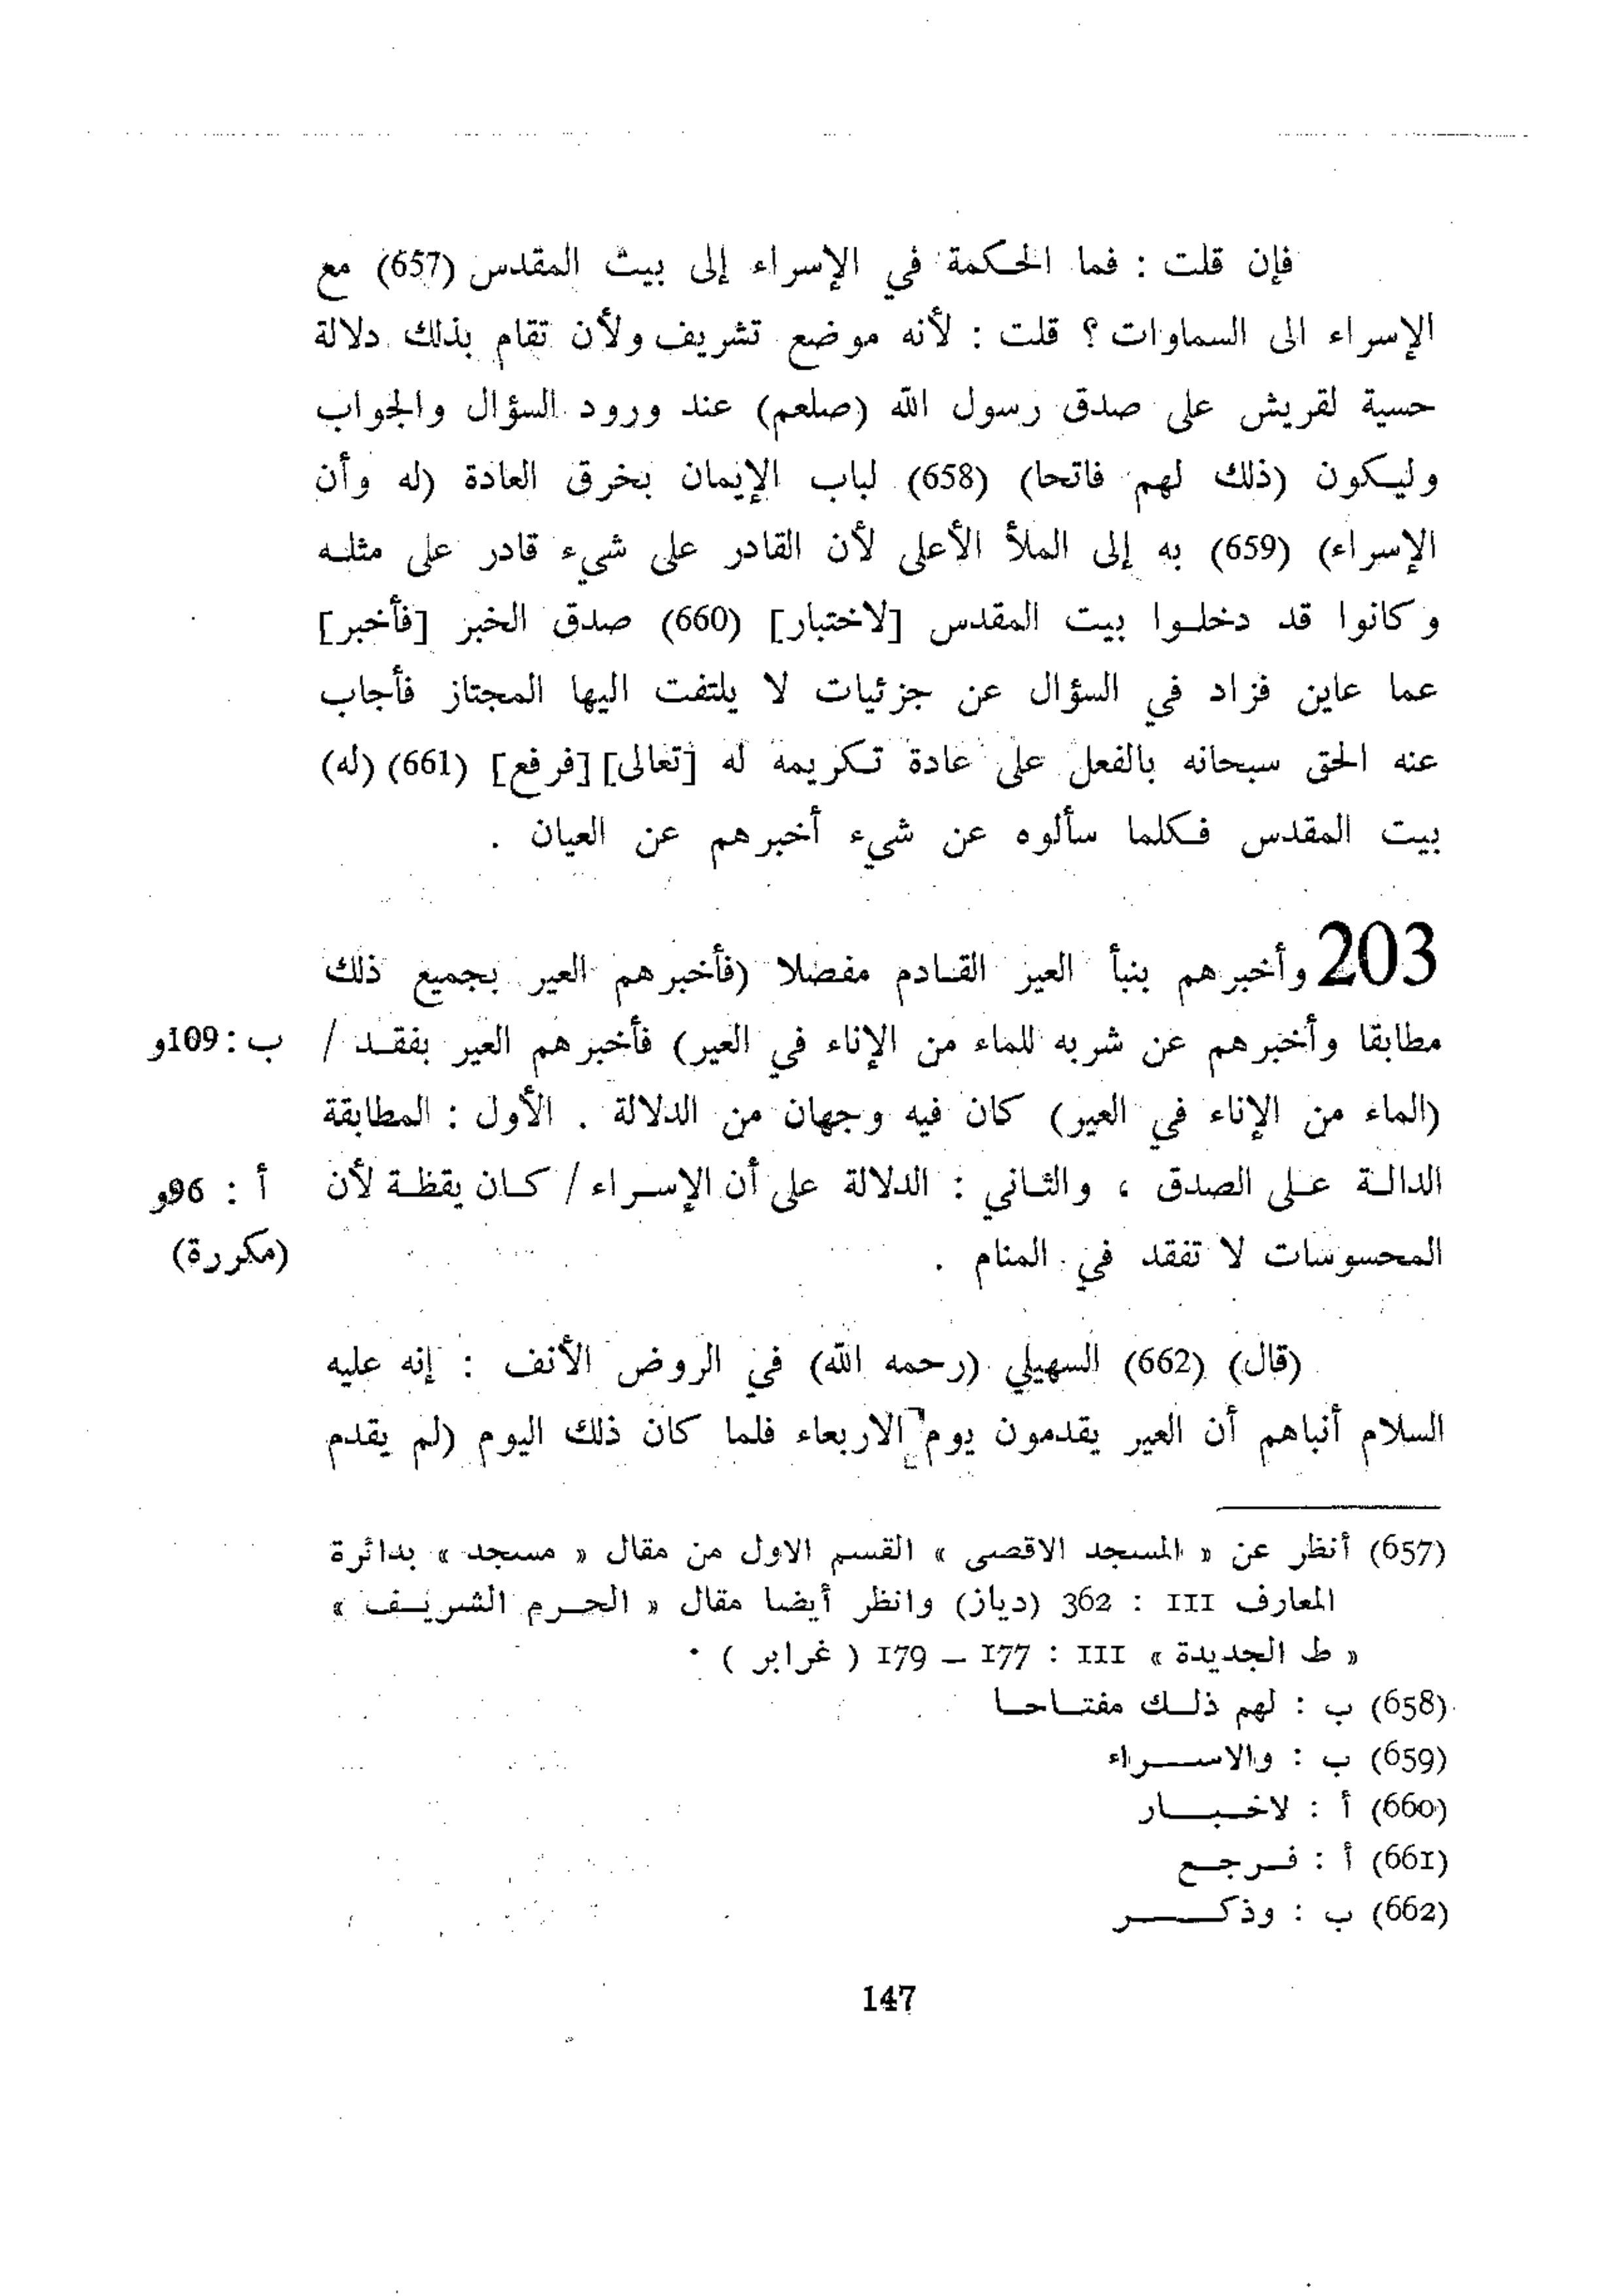 فإن قلت : فما الحكمة في الإسراء إلى بيت المقدس (657) مع
الإسراء الى السماوات ؟ قلت : لأنه موضع تشريف ولأن تقام بذلك دلالة
حسية لقريش على صدق رسول الله (صلعم) عند ورود السؤال والجواب
وليكون (ذلك لهم فاتحا) (658) لباب الإيمان بخرق العادة (له وأن
الإسراء) (659) به إلى الملأ الأعلى لأن القادر على شيء قادر على مثله
وكانوا قد دخلوا بيت المقدس [لاختبار] (660) صدق الخبر [فأخبر]
عما عاين فزاد في السؤال عن جزئيات لا يلتفت اليها المجتاز فأجاب
عنه الحق سبحانه بالفعل على عادة تكريمه له [تعالى] [فرفع] (661) (له)
بيت المقدس فكلما سألوه عن شيء أخبرهم عن العيان .
203 وأخبرهم بنبأ العير القادم مفصلا (فأخبرهم العير بجميع ذلك
مطابقا وأخبرهم عن شربه للماء من الإناء في العير) فأخبرهم العير بفقد / ب : 109و
(الماء من الإناء في العير) كان فيه وجهان من الدلالة . الأول : المطابقة
الدالة على الصدق ، والثاني : الدلالة على أن الإسراء / كان يقظة لأن أ : 96و
المحسوسات لا تفقد في المنام . (مكررة)
(قال) (662) السهيلي (رحمه الله) في الروض الأنف : إنه عليه
السلام أنباهم أن العير يقدمون يوم الاربعاء فلما كان ذلك اليوم (لم يقدم
(657) أنظر عن « المسجد الاقصى » القسم الاول من مقال « مسجد » بدائرة
المعارف III : 362 (دياز) وانظر أيضا مقال « الحرم الشريف »
« ط الجديدة » III : 177 – 179 ( غرابر ) .
(658) ب : لهم ذلك مفتاحا
(659) ب : والاسراء
(660) أ : لاخبار
(661) أ : فرجع
(662) ب : وذكر
147